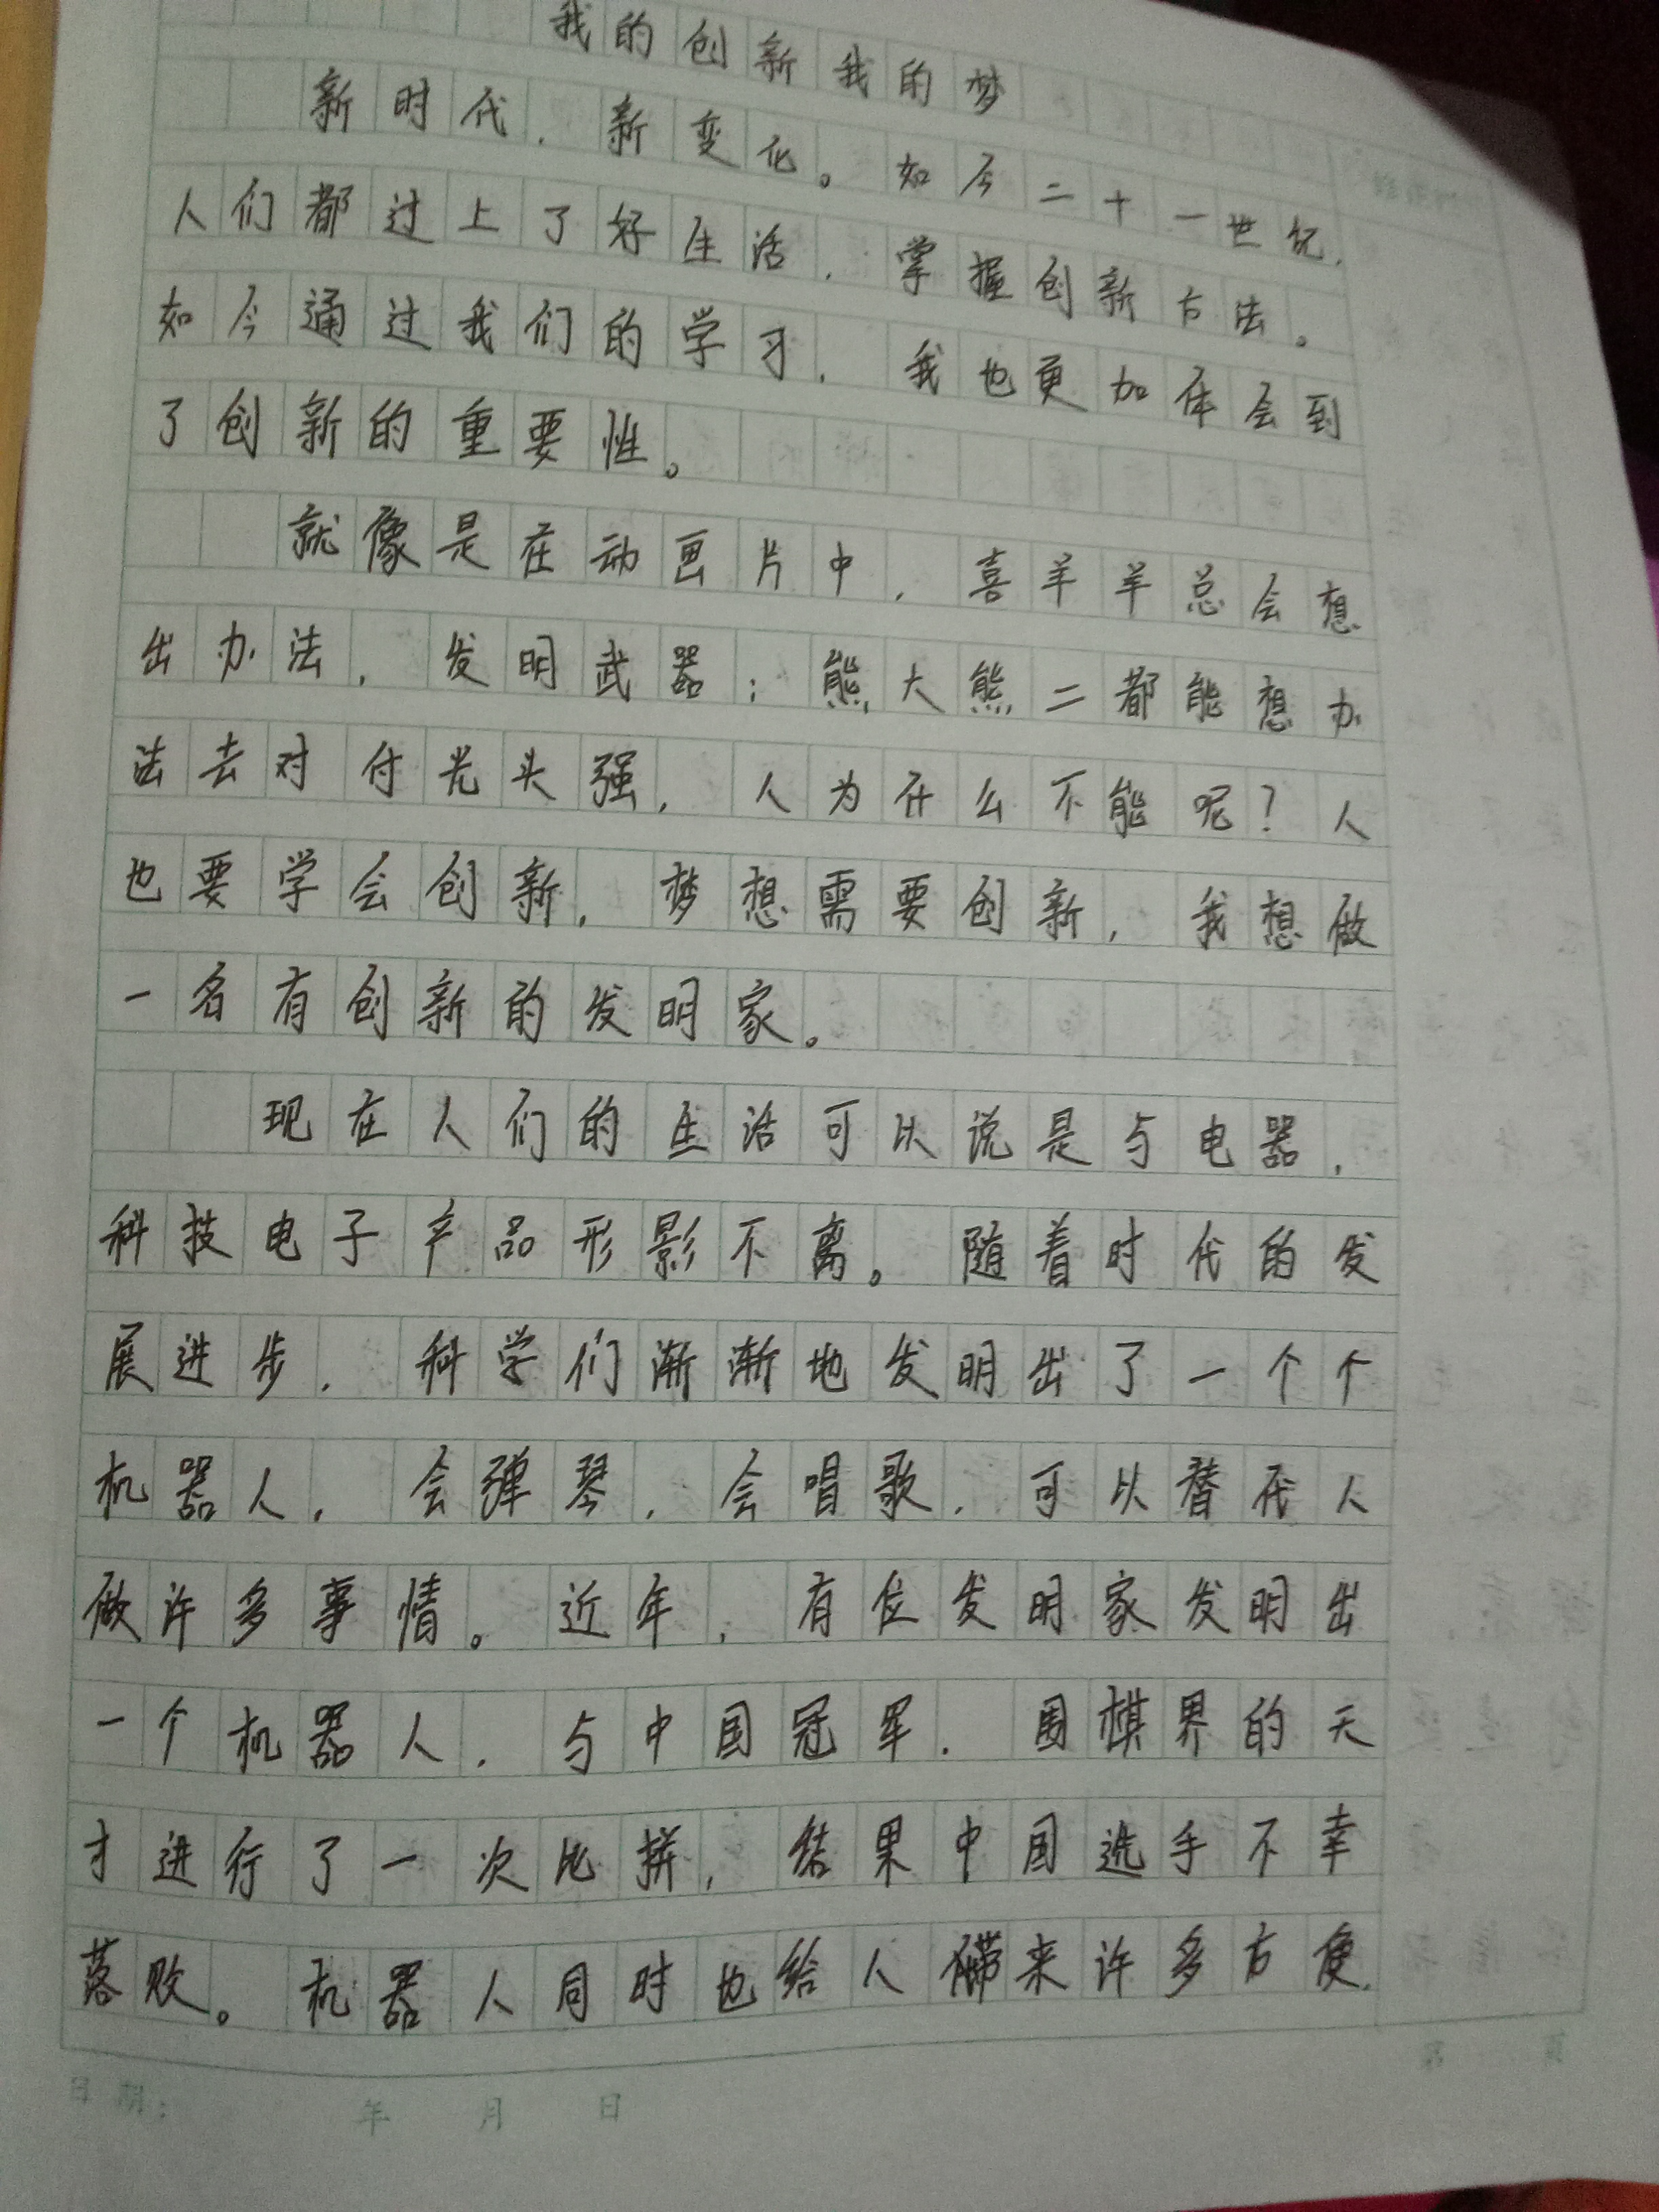 我的创新我的梦
新时代，新变化。如今二十一世纪，
人们都过上了好生活，掌握创新方法。
如今通过我们的学习，我也更加体会到
了创新的重要性。
就像是在动画片中，喜羊羊总会想
出办法，发明武器；熊大熊二都能想办
法去对付光头强，人为什么不能呢？人
也要学会创新，梦想需要创新，我想做
一名有创新的发明家。
现在人们的生活可以说是与电器，
科技电子产品形影不离。随着时代的发
展进步，科学们渐渐地发明出了一个个
机器人，会弹琴，会唱歌，可以替代人
做许多事情。近年，有位发明家发明出
一个机器人，与中国冠军，围棋界的天
才进行了一次比拼，结果中国选手不幸
落败。机器人同时也给人们带来许多方便，
日期： 年 月 日
第 页